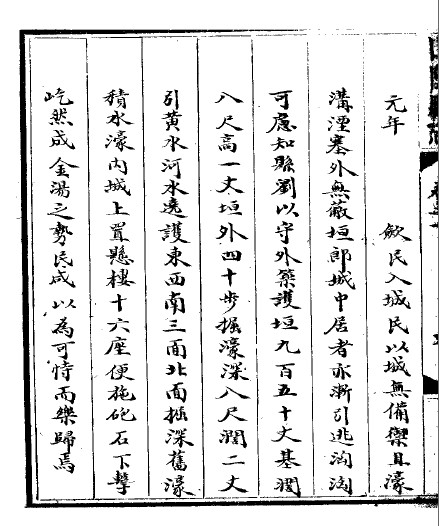 元年　　　歛民入城民以城無備禦且濠
溝湮塞外無蔽垣郎城中居者亦漸引逃洶洶
可慮知縣劉以守外築護垣九百五十丈基濶
八尺高一丈垣外四十步掘濠深八尺濶二丈
引黄水河水遶護東西南三面北面掘深舊濠
積水濠内城上置懸樓十六座便施砲石下擊
屹然成金湯之勢民咸以為可恃而樂歸焉